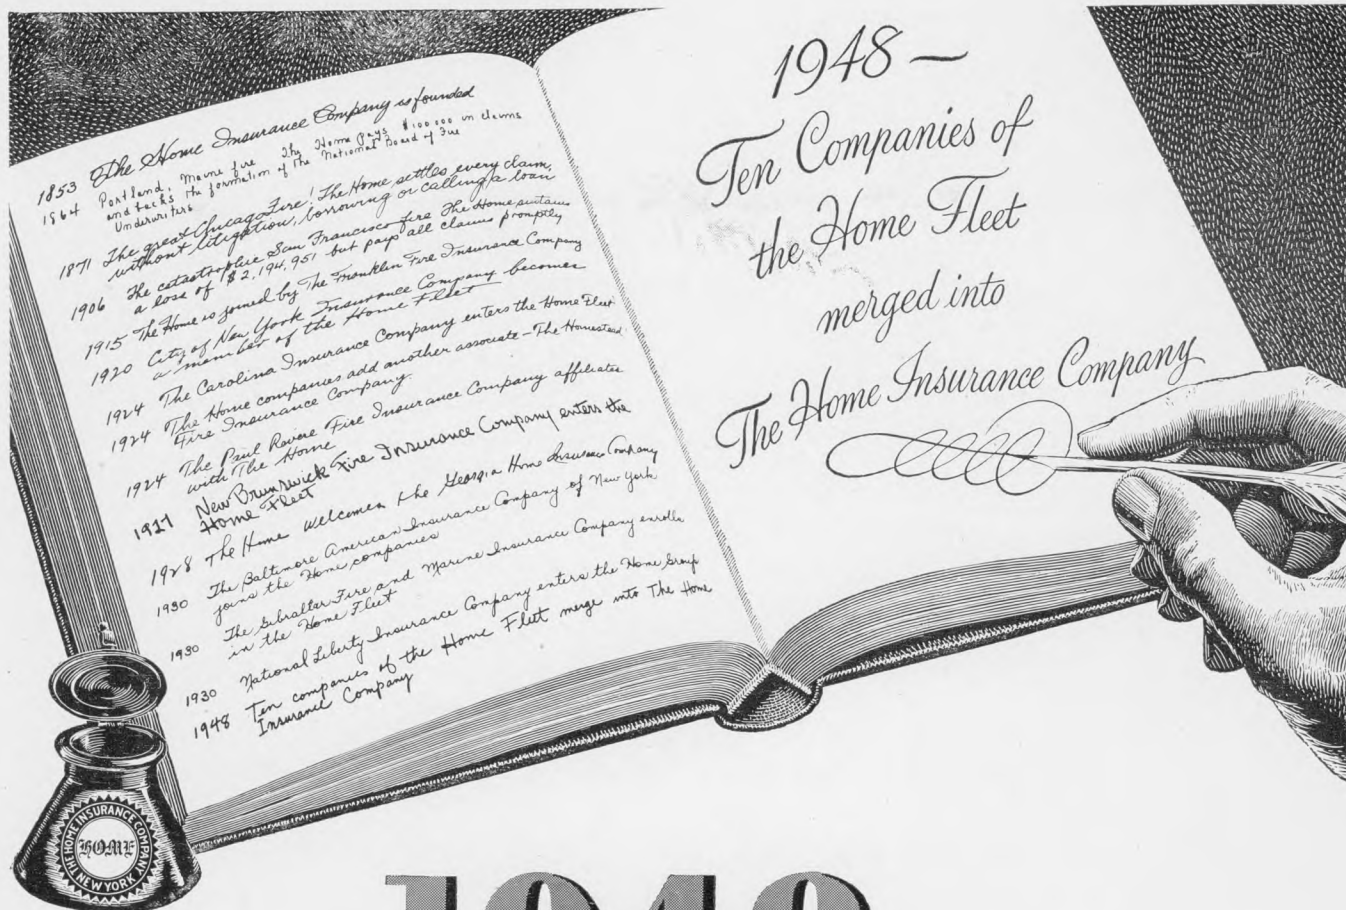 1853 The Home Insurance Company is founded
1864 Portland, Maine fire The Home pays $100 000 in claims
and backs the formation of the National Board of Fire
Underwriters
1871 The great Chicago Fire! The Home settles every claim,
without litigation, borrowing or calling a loan
1906 The catastrophic San Francisco fire The Home sustains
a loss of $2,194,951 but pays all claims promptly
1915 The Home is joined by The Franklin Fire Insurance Company
1920 City of New York Insurance Company becomes
a member of the Home Fleet
1924 The Carolina Insurance Company enters the Home Fleet
1924 The Home companies add another associate - The Homestead
Fire Insurance Company.
1924 The Paul Revere Fire Insurance Company affiliates
with The Home
1927 New Brunswick Fire Insurance Company enters the
Home Fleet
1928 The Home welcomes the Georgia Home Insurance Company
1930 The Baltimore American Insurance Company of New York
joins the Home companies
1930 The Gibraltar Fire and Marine Insurance Company enrolls
in the Home Fleet
1930 National Liberty Insurance Company enters the Home Group
1948 Ten companies of the Home Fleet merge into The Home
Insurance Company
1948 —
Ten Companies of
the Home Fleet
merged into
The Home Insurance Company
THE HOME INSURANCE COMPANY
HOME
NEW YORK